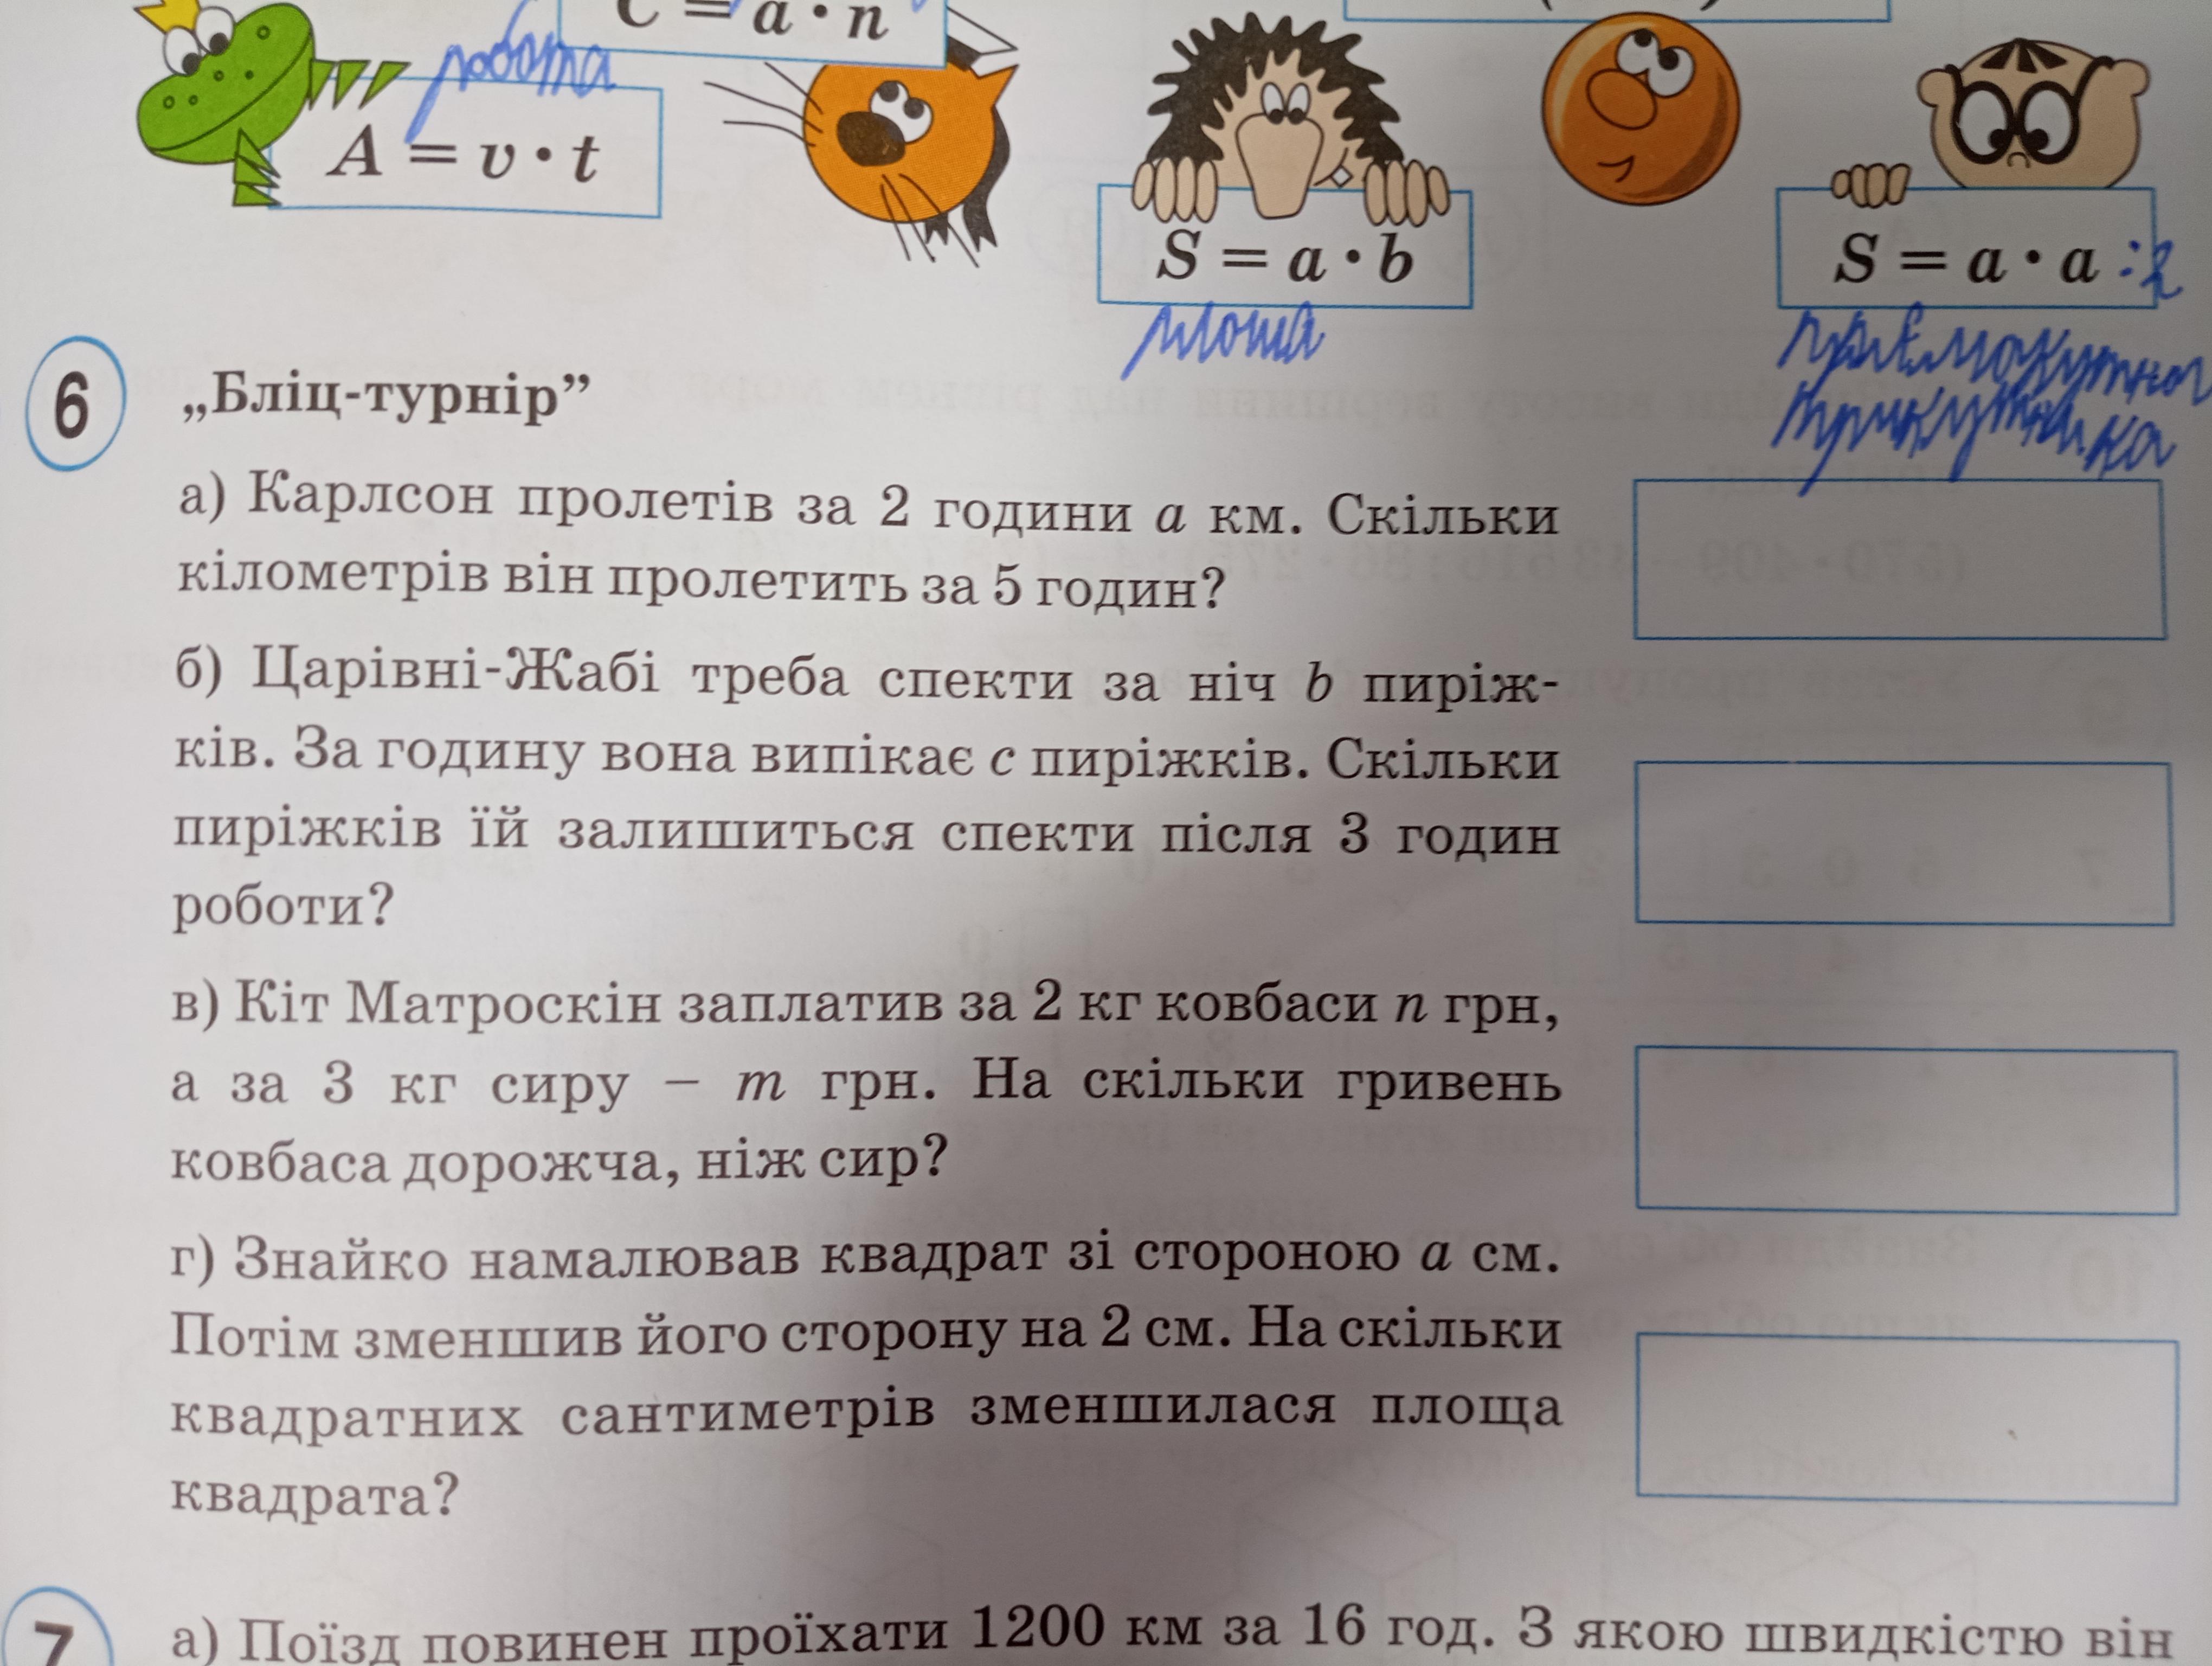 C = a · n
робота
A = v · t
S = a · b
S = a · a :2
площа
прямокутног
трикутника
6
„Бліц-турнір”
а) Карлсон пролетів за 2 години a км. Скільки
кілометрів він пролетить за 5 годин?
б) Царівні-Жабі треба спекти за ніч b пиріж-
ків. За годину вона випікає c пиріжків. Скільки
пиріжків їй залишиться спекти після 3 годин
роботи?
в) Кіт Матроскін заплатив за 2 кг ковбаси n грн,
а за 3 кг сиру – m грн. На скільки гривень
ковбаса дорожча, ніж сир?
г) Знайко намалював квадрат зі стороною a см.
Потім зменшив його сторону на 2 см. На скільки
квадратних сантиметрів зменшилася площа
квадрата?
7
а) Поїзд повинен проїхати 1200 км за 16 год. З якою швидкістю він